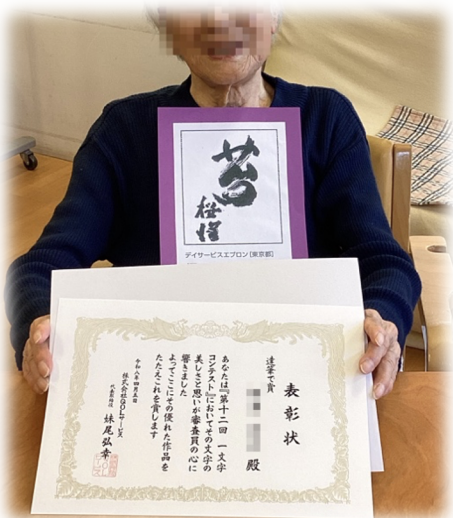 苔
デイサービスエプロン[東京都]
表彰状
達筆で賞
殿
あなたは『第十二回 一文字
コンテスト』においてその文字の
美しさと思いが審査員の心に
響きました
よってここにその優れた作品を
たたえこれを賞します
令和八年四月五日
株式会社QOLサービス
代表取締役 妹尾弘幸